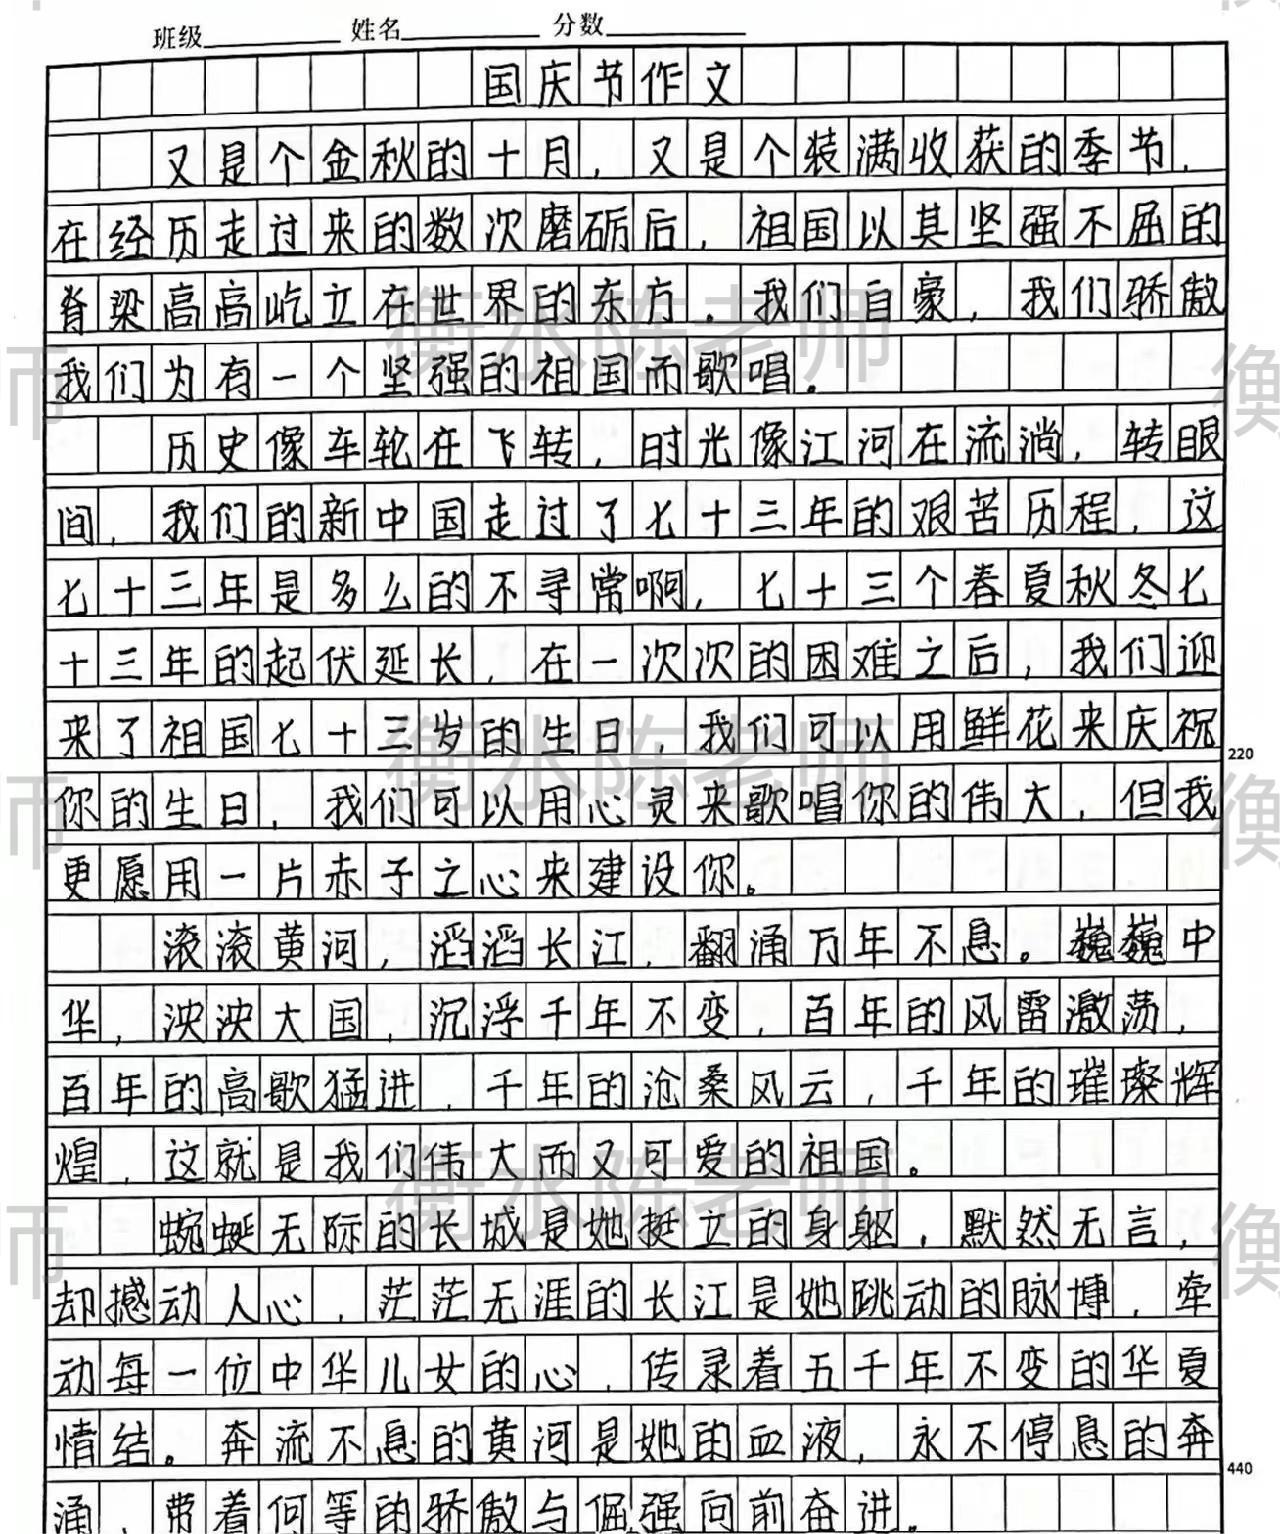 班级 姓名 分数
国庆节作文
又是个金秋的十月，又是个装满收获的季节，
在经历走过来的数次磨砺后，祖国以其坚强不屈的
脊梁高高屹立在世界的东方。我们自豪，我们骄傲
我们为有一个坚强的祖国而歌唱。
历史像车轮在飞转，时光像江河在流淌，转眼
间，我们的新中国走过了七十三年的艰苦历程，这
七十三年是多么的不寻常啊，七十三个春夏秋冬七
十三年的起伏延长，在一次次的困难之后，我们迎
来了祖国七十三岁的生日，我们可以用鲜花来庆祝
220
你的生日，我们可以用心灵来歌唱你的伟大，但我
更愿用一片赤子之心来建设你。
滚滚黄河，滔滔长江，翻涌万年不息。巍巍中
华，泱泱大国，沉浮千年不变，百年的风雷激荡，
百年的高歌猛进，千年的沧桑风云，千年的璀璨辉
煌，这就是我们伟大而又可爱的祖国。
蜿蜒无际的长城是她挺立的身躯，默然无言，
却撼动人心，茫茫无涯的长江是她跳动的脉博，牵
动每一位中华儿女的心，传录着五千年不变的华夏
情结。奔流不息的黄河是她的血液，永不停息的奔
440
涌，带着何等的骄傲与倔强向前奋进。
衡水陈老师
衡水陈老师
衡水陈老师